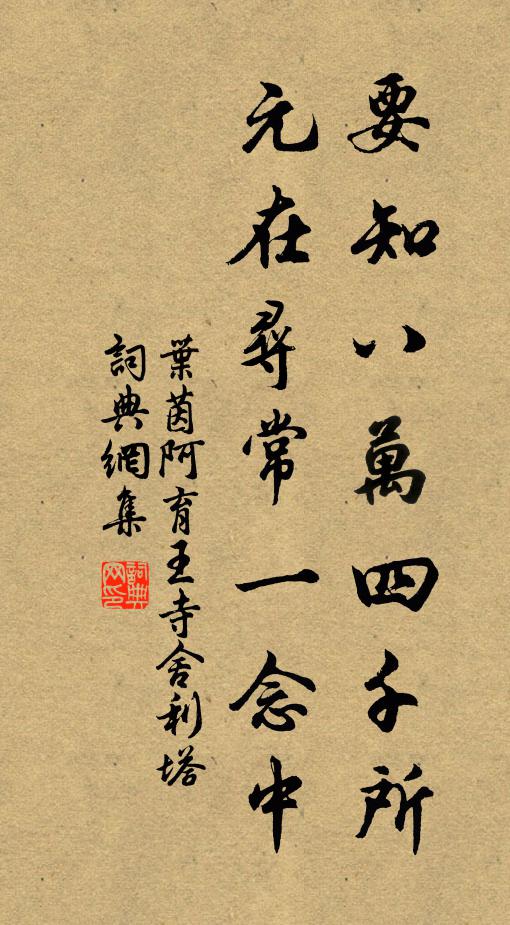 要知八萬四千所
元在尋常一念中
葉茵阿育王寺舍利塔
詞典網集
詞典网印